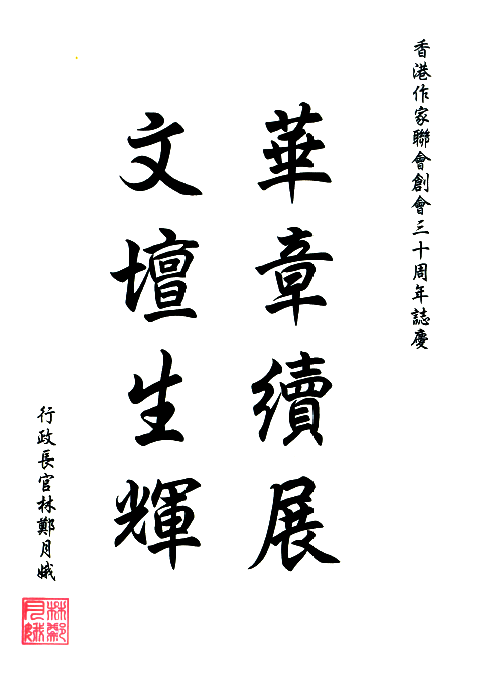 香港作家聯會創會三十周年誌慶
華章續展
文壇生輝
行政長官林鄭月娥
林鄭
月娥